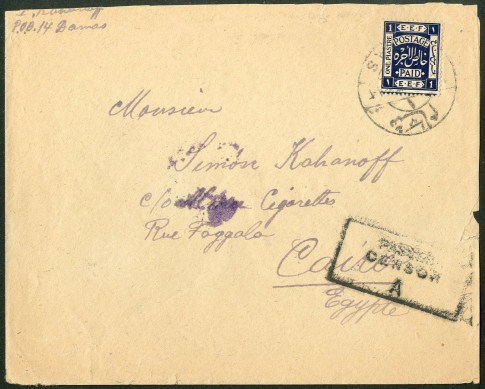 Kahanoff
P.O.B. 14 Damas
1 E.E.F 1
POSTAGE
ONE PIASTRE
خالص الأجرة
PAID
١ E.E.F 1
Monsieur
Simon Kahanoff
c/o Cigarettes
Rue Faggala
Cairo
Egypte
PASSED
CENSOR
A